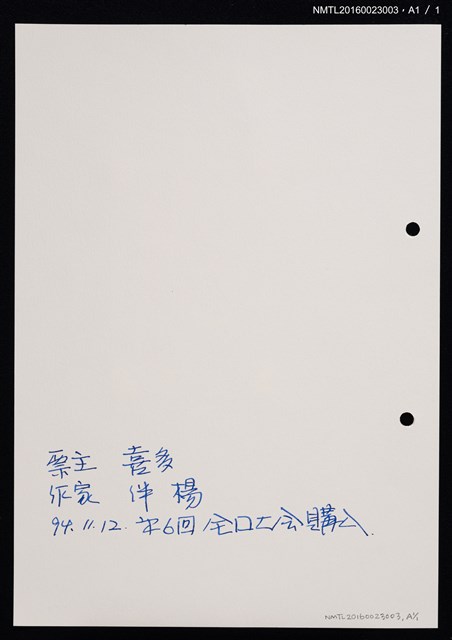 NMTL20160023003，A1 / 1
票主 喜多
作家 伴 楊
94.11.12. 第6回 全口大会購入.
NMTL20160023003, A1/1